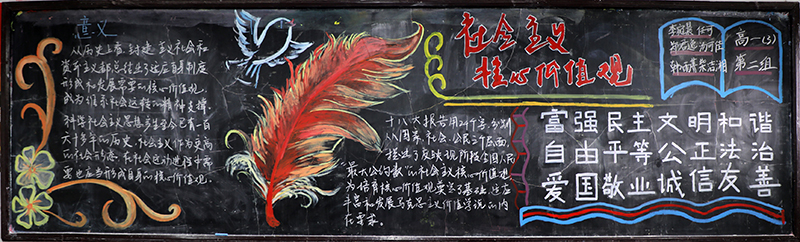 意义
从历史上看,封建主义社会和
资本主义都总结出了适应自身制度
形成和发展需要的核心价值观,
成为维系社会运转的精神支撑。
科学社会主义思想产生至今已有一百
六十多年的历史,社会主义作为更高
的社会形态,在社会运动进程中需
要也应当形成自身的核心价值观。
十八大报告用24个字,分别
从国家、社会、公民三个层面,
提出了反映现阶段全国人民
"最大公约数"的社会主义核心价值观
为培育核心价值观奠定了基础,适应
丰富和发展马克思主义价值学说的内
在要求。
社会主义
核心价值观
高一(3)
第二组
富强民主文明和谐
自由平等公正法治
爱国敬业诚信友善